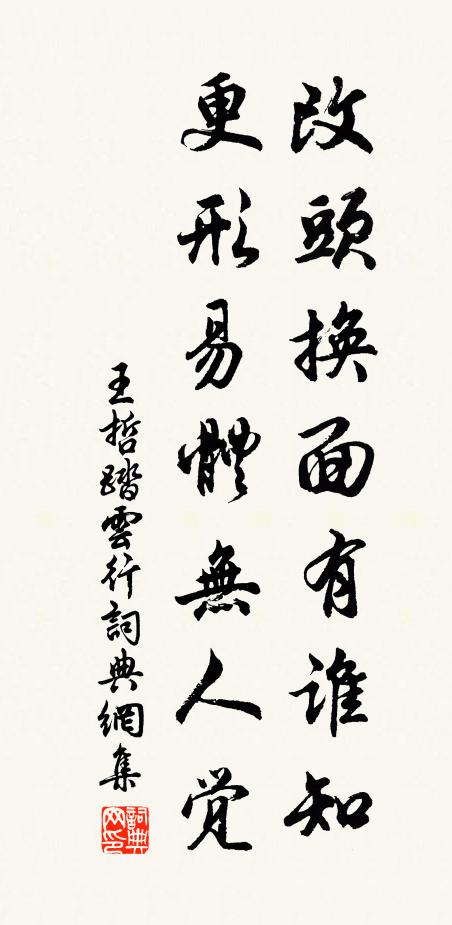 改頭換面有誰知
更形易體無人覚
王哲踏雲行詞典網集
詞典網印